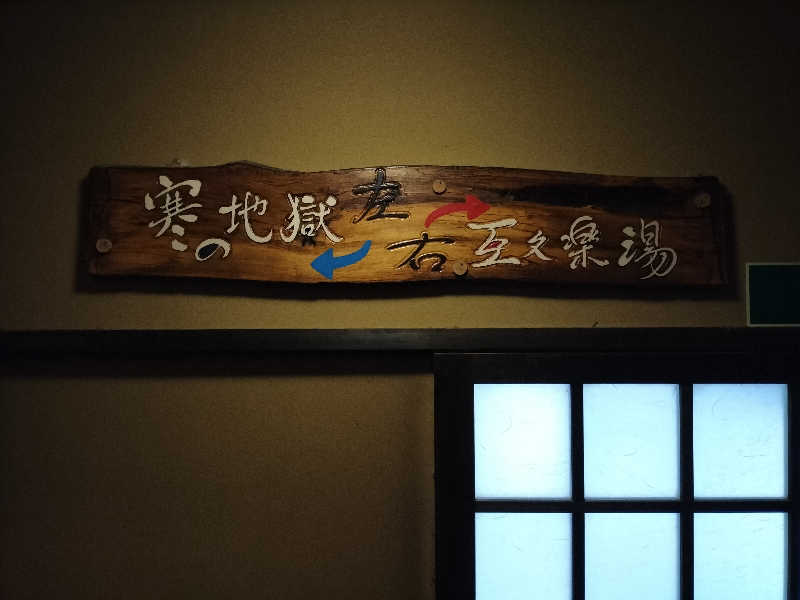 寒の地獄
左
右
互久楽湯